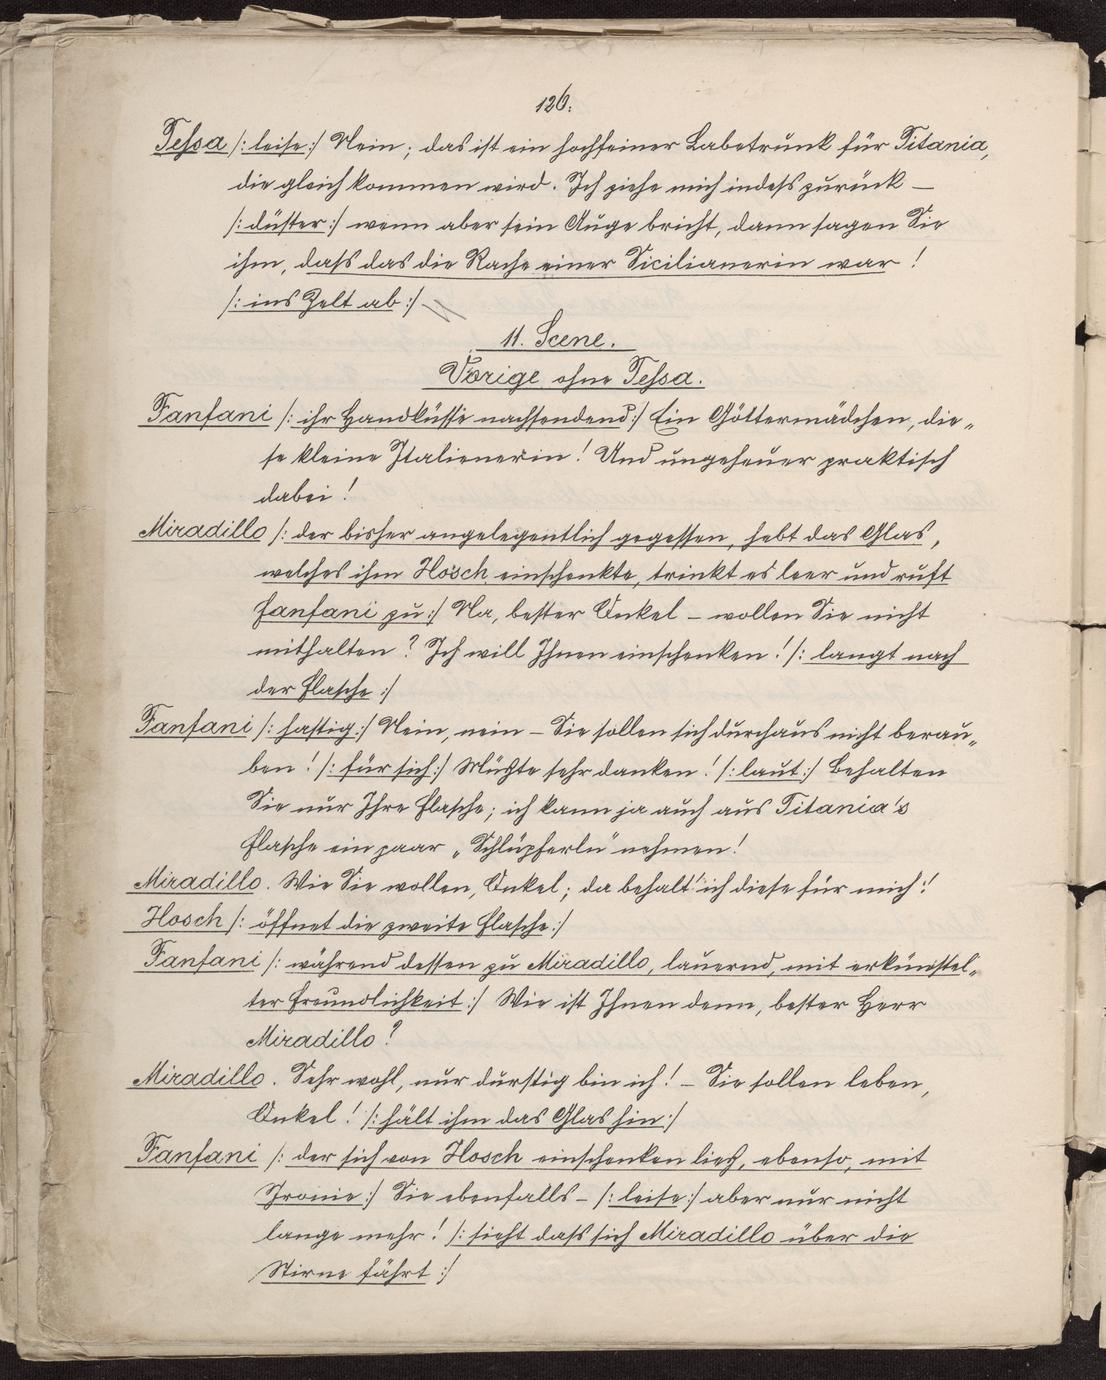 126.
Tessa /: leise :/ Nein; das ist ein hochfeiner Labetrunk für Titania,
die gleich kommen wird. Ich ziehe mich indess zurück —
/: düster :/ wenn aber sein Auge bricht, dann sagen Sie
ihm, dass das die Rache einer Sicilianerin war !
/: ins Zelt ab :/
11. Scene.
Vorige ohne Tessa.
Fanfani /: ihr Handküsse nachsendend :/ Ein Göttermädchen, die-
se kleine Italienerin ! Und ungeheuer praktisch
dabei !
Miradillo /: der bisher angelegentlich gegessen, hebt das Glas,
welches ihm Hosch einschenkte, trinkt es leer und ruft
Fanfani zu :/ Na, bester Onkel – wollen Sie nicht
mithalten ? Ich will Ihnen einschenken ! /: langt nach
der Flasche :/
Fanfani /: hastig :/ Nein, nein – Sie sollen sich durchaus nicht berau-
ben ! /: für sich :/ Müßte sehr danken ! /: laut :/ Behalten
Sie nur Ihre Flasche; ich kann ja auch aus Titania's
Flasche ein paar „Schlüpferln" nehmen !
Miradillo. Wie Sie wollen, Onkel; da behalt' ich diese für mich !
Hosch /: öffnet die zweite Flasche :/
Fanfani /: während dessen zu Miradillo, lauernd, mit erkünstel-
ter Freundlichkeit :/ Wie ist Ihnen denn, bester Herr
Miradillo ?
Miradillo. Sehr wohl, nur durstig bin ich ! – Sie sollen leben,
Onkel ! /: hält ihm das Glas hin :/
Fanfani /: der sich von Hosch einschenken ließ, ebenso, mit
Ironie :/ Sie ebenfalls – /: leise :/ aber nur nicht
lange mehr ! /: sieht dass sich Miradillo über die
Stirne fährt :/